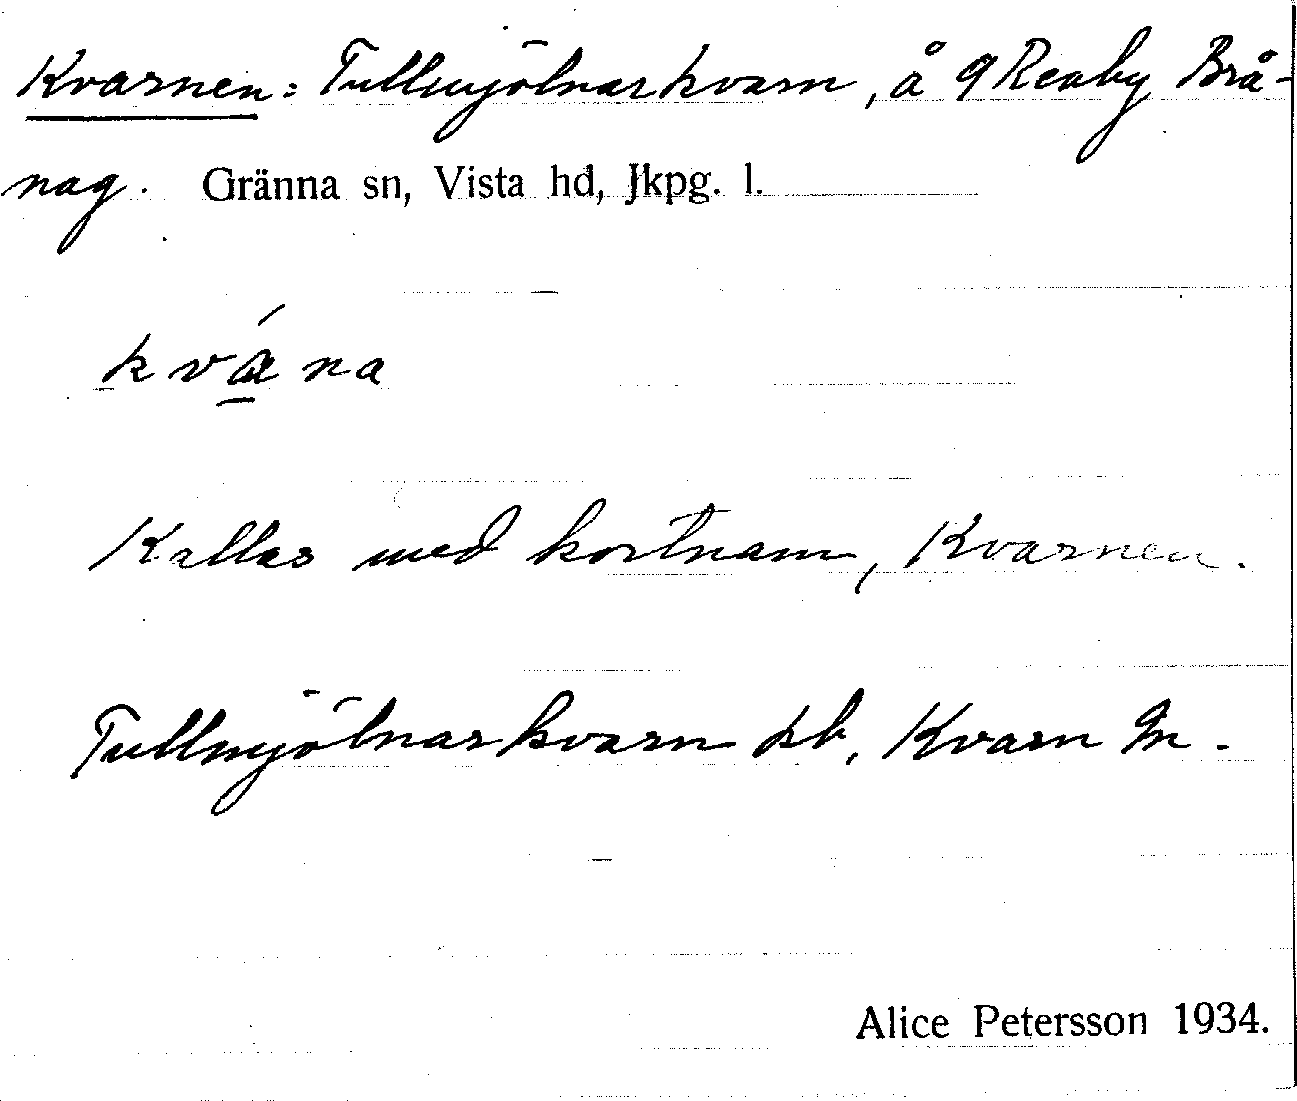 Kvarnen: Tullmjölnarkvarn, å 9 Reaby Brå-
nag. Gränna sn, Vista hd, Jkpg. l.
kvána
Kallas med kortnam, Kvarnen.
Tullmjölnarkvarn jkb, Kvarn Gn.
Alice Petersson 1934.